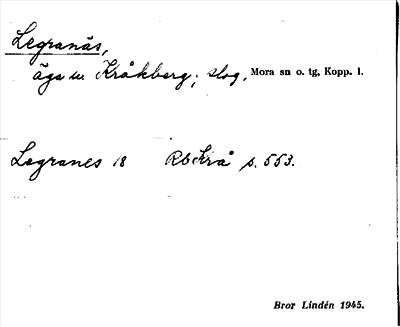 Legranäs,
äga u. Kråkberg; slog, Mora sn o. tg, Kopp. l.
Legranes 18 RbKrå s. 553.
Bror Lindén 1945.